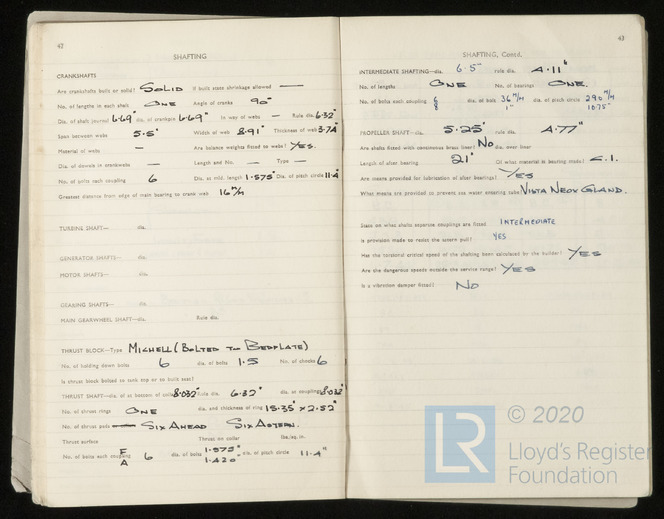 42
SHAFTING
CRANKSHAFTS
Are crankshafts built or solid? SOLID If built state shrinkage allowed —
No. of lengths in each shaft ONE Angle of cranks 90°
Dia. of shaft journal 6.69" dia. of crankpin 6.69" In way of webs — Rule dia. 6.32"
Span between webs 5.5" Width of web 8.91" Thickness of web 3.74"
Material of webs — Are balance weights fitted to webs? YES.
Dia. of dowels in crankwebs — Length and No. — Type —
No. of bolts each coupling 6 Dia. at mid. length 1.575" Dia. of pitch circle 11.4"
Greatest distance from edge of main bearing to crank web 16 m/m
TURBINE SHAFT— dia.
GENERATOR SHAFTS— dia.
MOTOR SHAFTS— dia.
GEARING SHAFTS— dia.
MAIN GEARWHEEL SHAFT—dia. Rule dia.
THRUST BLOCK—Type MICHELL (BOLTED TO BEDPLATE)
No. of holding down bolts 6 dia. of bolts 1.5 No. of chocks 6
Is thrust block bolted to tank top or to built seat?
THRUST SHAFT—dia. at bottom of collars 8.032" Rule dia. 6.32" dia. at couplings 8.032"
No. of thrust rings ONE dia. and thickness of ring 15.35" x 2.52"
No. of thrust pads SIX AHEAD SIX ASTERN.
Thrust surface Thrust on collar lbs./sq. in.
No. of bolts each coupling F A 6 dia. of bolts 1.575" 1.420" dia. of pitch circle 11.4"
43
SHAFTING, Contd.
INTERMEDIATE SHAFTING—dia. 6.5" rule dia. 4.11"
No. of lengths ONE No. of bearings ONE.
No. of bolts each coupling 6 8 dia. of bolts 36 m/m 1" dia. of pitch circle 290 m/m 10.75"
PROPELLER SHAFT—dia. 5.25" rule dia. 4.77"
Are shafts fitted with continuous brass liner? NO dia. over liner
Length of after bearing 21" Of what material is bearing made? C.I.
Are means provided for lubrication of after bearing? YES
What means are provided to prevent sea water entering tube VISTA NEOX GLAND.
State on what shafts separate couplings are fitted INTERMEDIATE
Is provision made to resist the astern pull? YES
Has the torsional critical speed of the shafting been calculated by the builder? YES
Are the dangerous speeds outside the service range? YES
Is a vibration damper fitted? NO
LR
© 2020
Lloyd's Register
Foundation